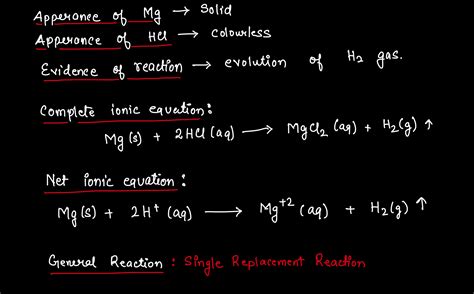 Apperance of Mg → Solid
Apperance of HCl → colourless
Evidence of reaction → evolution of H₂ gas.
Complete ionic equation:
Mg(s) + 2HCl(aq) ⟶ MgCl₂ (aq) + H₂(g) ↑
Net ionic equation:
Mg(s) + 2H⁺ (aq) ⟶ Mg⁺² (aq) + H₂(g) ↑
General Reaction : Single Replacement Reaction